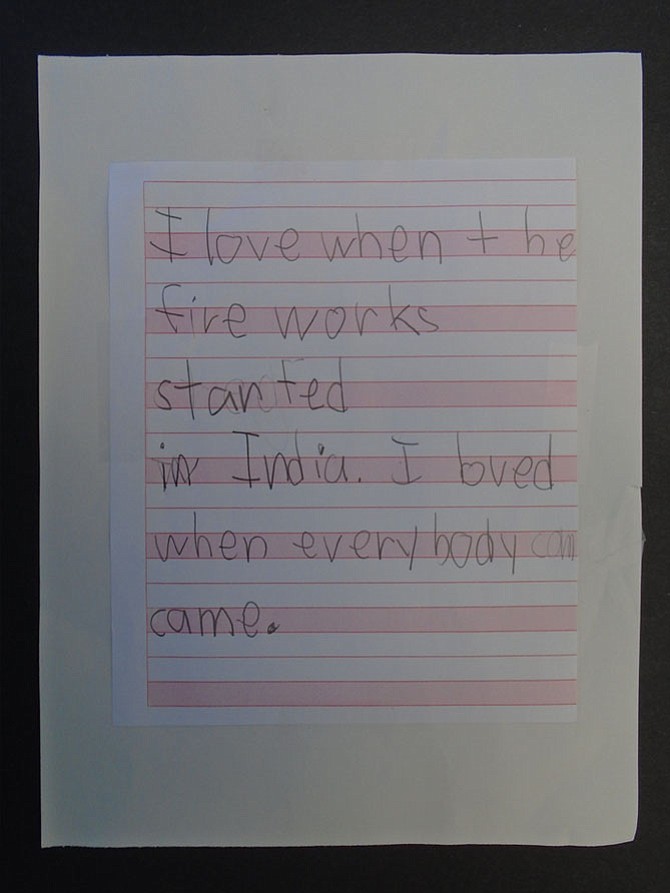 I love when the
fire works
started
in India. I loved
when everybody
came.